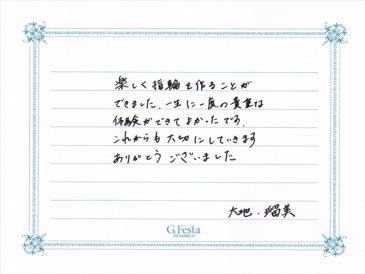 楽しく指輪を作ることが
できました。一生に一度の貴重な
体験ができてよかったです。
これからも大切にしていきます
ありがとうございました
大地・瑠美
G.Festa